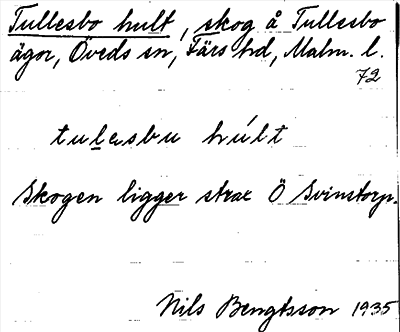 Tullesbo hult, skog å Tullesbo
ägor, Öveds sn, Färs hd, Malm. l.
72
tulesbu húlt
Skogen ligger strax Ö Svinstorp.
Nils Bengtsson 1935